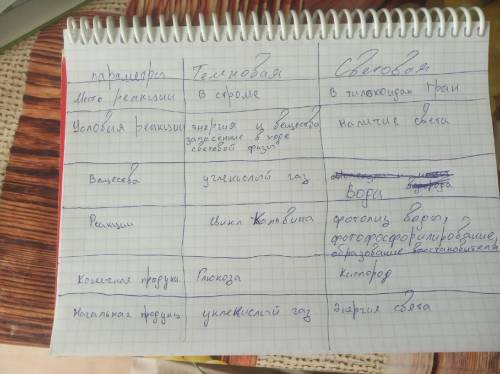 параметры Темновая Световая
Место реакции В строме В тилакоидах гран
Условия реакции энергия и вещества наличие света
запасённые в ходе
световой фазы
Вещества углекислый газ Вода
Реакции Цикл Кальвина фотолиз воды,
фотофосфорилирование,
образование восстановителя
Конечная продукц Глюкоза Кислород
Начальная продукц углекислый газ Энергия света